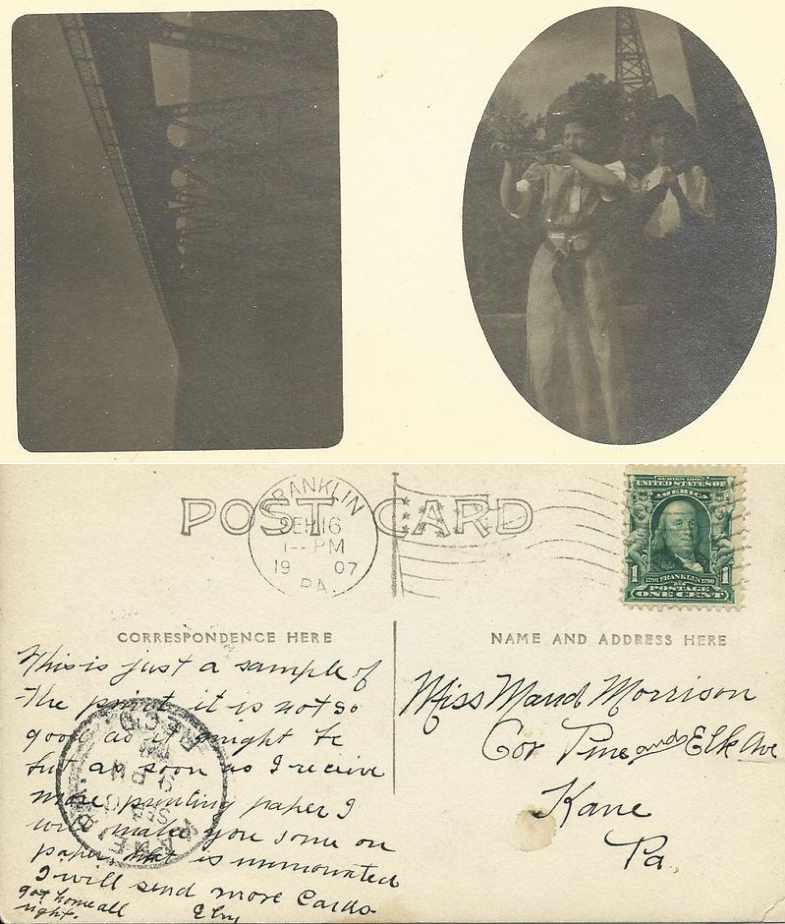 POST CARD
FRANKLIN
SEP 16
1-- PM
19 07
PA.
SERIES 1902
UNITED STATES OF
AMERICA
1 1706 FRANKLIN 1790 1
POSTAGE
ONE CENT
CORRESPONDENCE HERE
This is just a sample of
the print it is not so
good as it might be
but as soon as I receive
more printing paper I
will make you some on
paper that is unmounted
I will send more Cards.
got home all
right.
NAME AND ADDRESS HERE
Miss Maud Morrison
Cor Pine and Elk Ave
Kane
Pa.
KANE
REC'D.